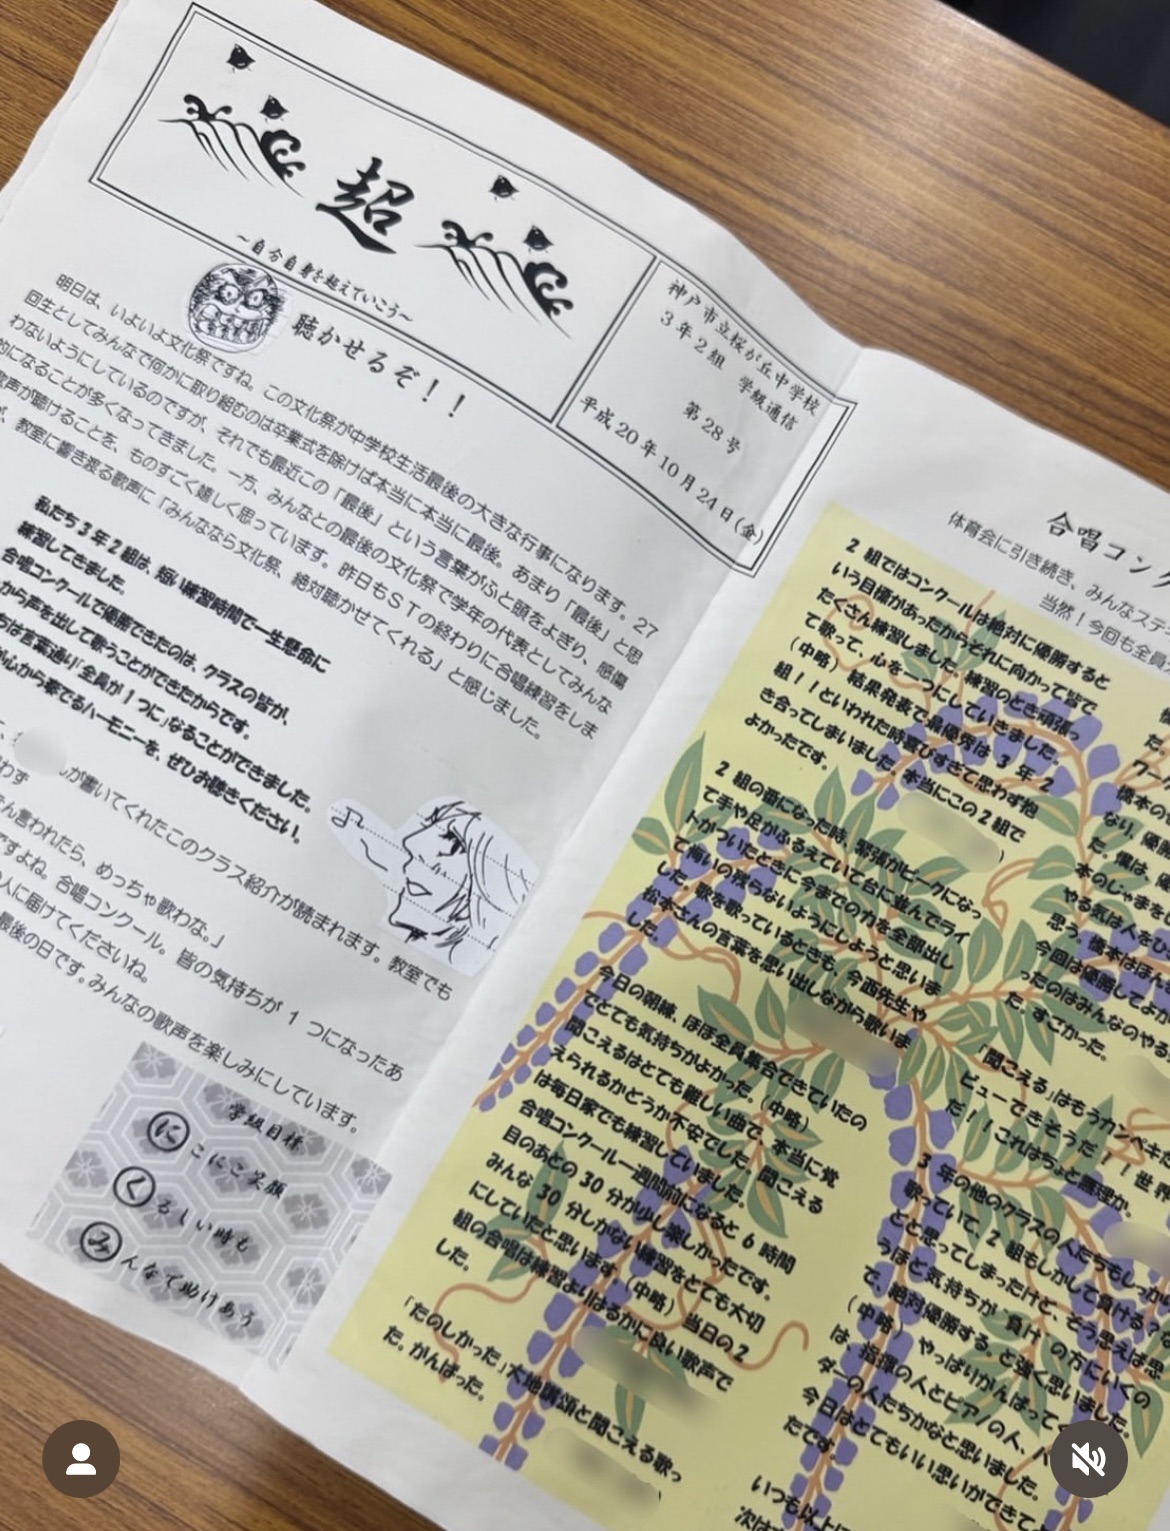 超
～自分自身を越えていこう～
神戸市立桜が丘中学校
3年2組 学級通信
第28号
平成20年10月24日(金)
聴かせるぞ!!
明日は、いよいよ文化祭ですね。この文化祭が中学校生活最後の大きな行事になります。27
回生としてみんなで何かに取り組むのは卒業式を除けば本当に本当に最後。あまり「最後」と思
わないようにしているのですが、それでも最近この「最後」という言葉がふと頭をよぎり、感傷
的になることが多くなってきました。一方、みんなとの最後の文化祭で学年の代表としてみんな
歌声が聴けることを、ものすごく嬉しく思っています。昨日もSTの終わりに合唱練習をしま
、教室に響き渡る歌声に「みんななら文化祭、絶対聴かせてくれる」と感じました。
私たち3年2組は、短い練習時間で一生懸命に
練習してきました。
合唱コンクールで優勝できたのは、クラスの皆が、
から声を出して歌うことができたからです。
ちは言葉通り「全員が1つに」なることができました。
心から奏でるハーモニーを、ぜひお聴きください。
が書いてくれたこのクラス紹介が読まれます。教室でも
わず
言われたら、めっちゃ歌わな。」
ですよね。合唱コンクール。皆の気持ちが1つになったあ
人に届けてくださいね。
最後の日です。みんなの歌声を楽しみにしています。
学級目標
にこにこ笑顔
くるしい時も
みんなで助けあう
合唱コンク
体育会に引き続き、みんなステ
当然!今回も全員
2組ではコンクールは絶対に優勝すると
いう目標があったからそれに向かって皆で
たくさん練習しました。練習のとき頑張っ
て歌って、心を一つにしていきました。
(中略)結果発表で最優秀は3年2
組!!といわれた時喜びすぎて思わず抱
き合ってしまいました。本当にこの2組で
よかったです。
2組の番になった時、緊張がピークになっ
て手や足がふるえていて台に並んでライ
トがついたときに今までの力を全部出し
て悔いの残らないようにしようと思いま
した。歌を歌っているときも、今西先生や
松本さんの言葉を思い出しながら歌いま
した。
今日の朝練、ほぼ全員集合できていたの
でとても気持ちがよかった。(中略)
聞こえるはとても難しい曲で、本当に覚
えられるかどうか不安でした。聞こえる
は毎日家でも練習していました。
合唱コンクール一週間前になると6時間
目のあとの30分が少し楽しかったです。
みんな30分しかない練習をとても大切
にしていたと思います。(中略)当日の2
組の合唱は練習よりはるかに良い歌声で
した。
「たのしかった」大地讃頌と聞こえる歌っ
た。がんばった。
た。
ワー
橋本の
なり、優勝
た。僕は、優
本のじゃまをし
やる気は人をひっ
思う。橋本はほん
今回は優勝してよか
ったのはみんなのやる
た。すごかった。
「聞こえる」はもうカンペキだ
ビューできそうだ!!世界
だ!!これはちょと無理か。
3年の他のクラスの人たちもしっかり
歌っていて、2組もしかして負ける?
とと思ってしまったけど、そう思えば思
うほど気持ちが、負けの方にいくの
で、絶対優勝する。と強く思いました。
(中略)やっぱりがんばって
は、指揮の人とピアノの人、パ
ダーの人たちかなと思いました。
今日はとてもいい思いができて
たです。
いつも以上に
次は